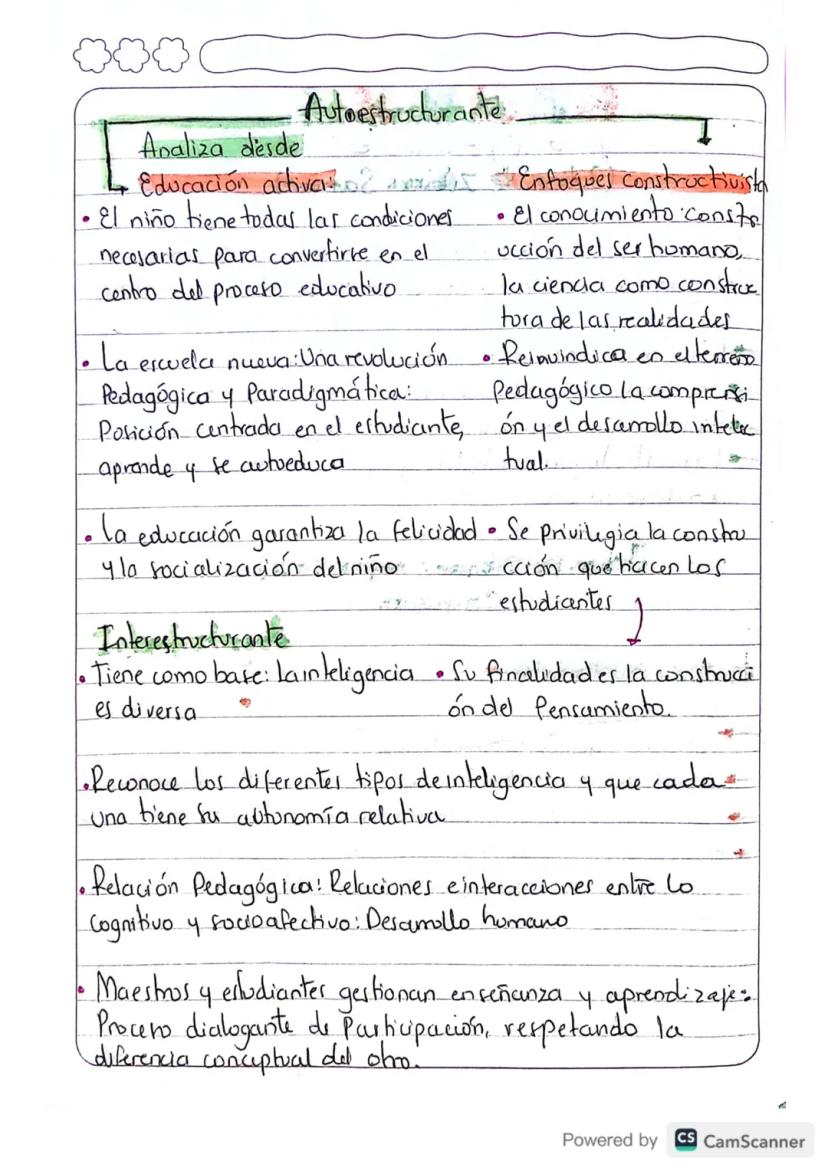 Autoestructurante
Analiza desde
Educación activa:
• El niño tiene todas las condiciones
necesarias para convertirse en el
centro del proceso educativo
• La escuela nueva: Una revolución
Pedagógica y Paradigmática:
Posición centrada en el estudiante,
aprende y se autoeduca
• La educación garantiza la felicidad
y la socialización del niño
Enfoques constructivista
• El conocimiento: constr
ucción del ser humano,
la ciencia como construc
tora de las realidades
• Reinvindica en el terreno
Pedagógico la comprensi
ón y el desarrollo intelec
tual.
• Se privilegia la constru
cción que hacen los
estudiantes
Interestructurante
• Tiene como base: La inteligencia
es diversa
• Su finalidad es la construcci
ón del Pensamiento.
• Reconoce los diferentes tipos de inteligencia y que cada
una tiene su autonomía relativa
• Relación Pedagógica: Relaciones e interacciones entre lo
cognitivo y socioafectivo: Desarrollo humano
• Maestros y estudiantes gestionan enseñanza y aprendizaje:
Proceso dialogante de Participación, respetando la
diferencia conceptual del otro.
Powered by CS CamScanner